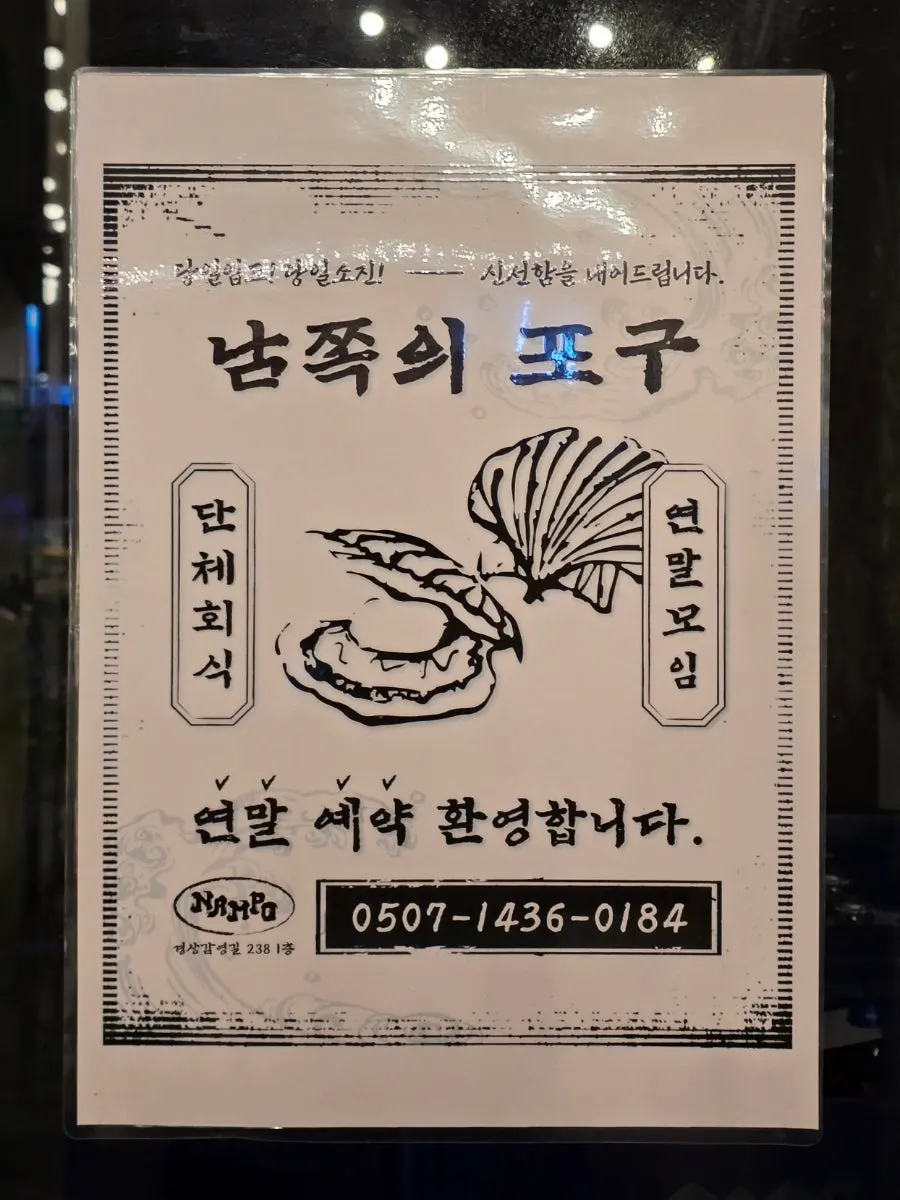 당일입고! 당일소진! — 신선함을 내어드립니다.
남쪽의 포구
단체회식
연말모임
연말 예약 환영합니다.
NAMPO
0507-1436-0184
경상감영길 238 1층